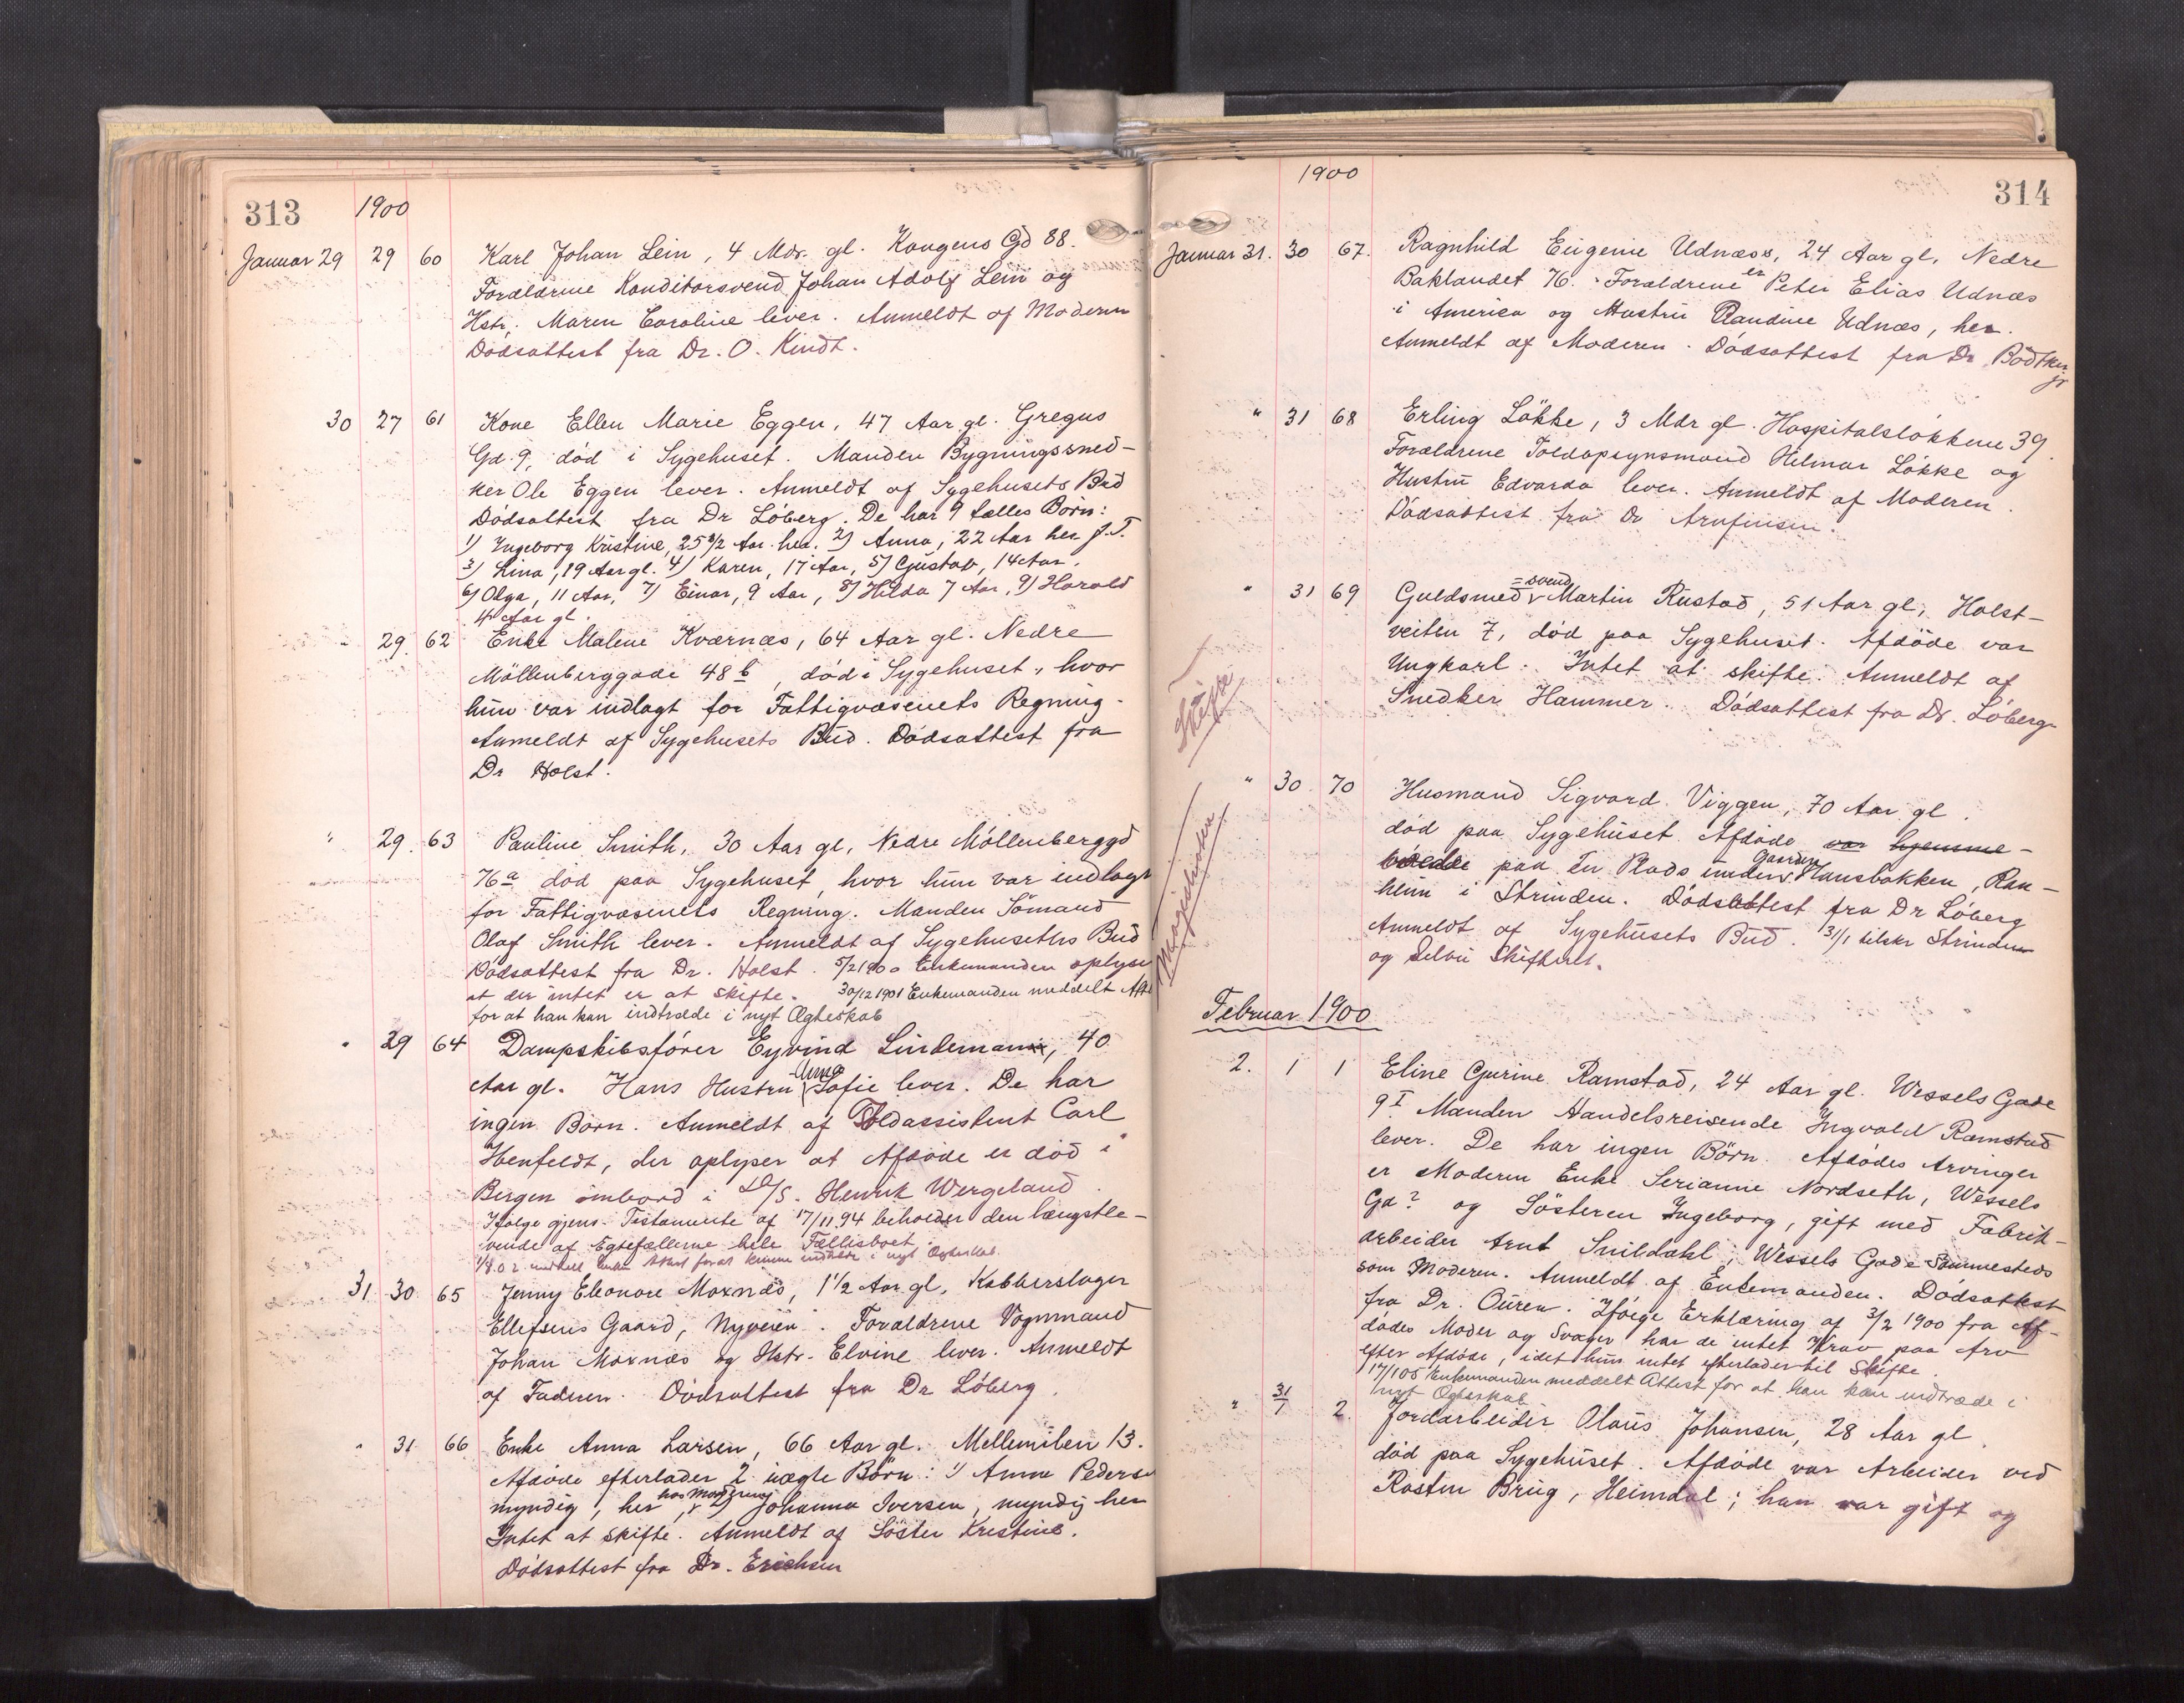 313 1900
Januar 29 29 60 Karl Johan Lein, 4 Mdr. gl. Kongens Gd 88.
Forældrene Konditorsvend Johan Adolf Lein og
Hstr. Maren Caroline lever. Anmeldt af Moderen
Dödsattest fra Dr. O. Kindt.
30 27 61 Kone Ellen Marie Eggen, 47 Aar gl. Gregus
Gd. 9, död i Sygehuset. Manden Bygningssned-
ker Ole Eggen lever. Anmeldt af Sygehusets Bud
Dödsattest fra Dr Löberg. De har 9 fælles Börn:
1) Ingeborg Kristine, 25 Aar. her. 2) Anna, 22 Aar her J. T.
3) Lina, 19 Aar gl. 4) Karen, 17 Aar, 5) Gustav, 14 Aar.
6) Olga, 11 Aar, 7) Einar, 9 Aar, 8) Hilda 7 Aar, 9) Harald
4 Aar gl.
" 29. 62 Enke Malene Kværnæs, 64 Aar gl. Nedre
Möllenberggade 48 b, död i Sygehuset, hvor
hun var indlagt for Fattigvæsenets Regning.
Anmeldt af Sygehusets Bud. Dödsattest fra
Dr Holst.
" 29. 63 Pauline Smith, 30 Aar gl, Nedre Möllenberggd
76 a död paa Sygehuset, hvor hun var indlagt
for Fattigvæsenets Regning. Manden Sömand
Olaf Smith lever. Anmeldt af Sygehusets Bud
Dödsattest fra Dr. Holst. 5/2 1900 Enkemanden oplyser
at der intet er at skifte. 30/12 1901 Enkemanden meddelt Att
for at han kan indtræde i nyt Ægteskab
" 29 64 Dampskibsförer Eyvind Lindemann, 40
Aar gl. Hans Hustru Anna Sofie lever. De har
ingen Börn. Anmeldt af Toldassistent Carl
Henfeldt, der oplyser at Afdöde er död i
Bergen ombord i D/S. Henrik Wergeland.
Ifölge gjens. Testamente af 17/11 94 beholder den længstle-
vende af Egtefællerne hele Fællesboet.
i nyt Ægteskab.
31 30 65 Jenny Eleonore Moxnæs, 1 1/2 Aar gl, Kobberslager
Ellefsens Gaard, Nyveien. Forældrene Vognmand
Johan Moxnæs og Hstr. Elvine lever. Anmeldt
af Faderen. Dödsattest fra Dr Löberg.
" 31 66 Enke Anna Larsen, 66 Aar gl. Mellemilen 13.
Afdöde efterlader 2 uægte Börn: 1) Anna Peders
myndig, her, 2) Johanna Iversen, myndig her
Intet at skifte. Anmeldt af Söster Kristine.
Dödsattest fra Dr. Erichsen
1900 314
Januar 31. 30 67. Ragnhild Eugenie Udnæs, 24 Aar gl, Nedre
Baklandet 76. Forældrene er Peter Elias Udnæs
i America og Hustru Randine Udnæs, her.
Anmeldt af Moderen. Dödsattest fra Dr Bödtker
jr
" 31 68 Erling Lökke, 3 Mdr gl. Hospitalslökkene 39.
Forældrene Toldopsynsmand Hilmar Lökke og
Hustru Edvarda lever. Anmeldt af Moderen.
Dödsattest fra Dr Arnfinsen.
" 31 69 Guldsmed=svend Martin Rustad, 51 Aar gl, Holst-
veiten 7, död paa Sygehuset. Afdöde var
Ungkarl. Intet at skifte. Anmeldt af
Snedker Hammer. Dödsattest fra Dr. Löberg
" 30 70 Husmand Sigvard Viggen, 70 Aar gl.
död paa Sygehuset. Afdöde var hjemme-
paa en Plads under Gaarden Hansbakken, Ran-
heim i Strinden. Dödsattest fra Dr Löberg
Anmeldt af Sygehusets Bud. 31/1 tilskr Strinden
og Selbu Skifteret.
Magistraten
Februar 1900
2. 1 1 Eline Gurine Ramstad, 24 Aar gl. Wessels Gade
9 I. Manden Handelsreisende Ingvald Ramstad
lever. De har ingen Börn. Afdödes Arvinger
er Moderen Enke Serianne Nordseth, Wessels
Gd? og Sösteren Ingeborg, gift med Fabrik-
arbeider Arnt Snildahl, Wessels Gade Sammesteds
som Moderen. Anmeldt af Enkemanden. Dödsattest
fra Dr. Ouren. Ifölge Erklæring af 3/2 1900 fra Af-
dödes Moder og Svoger har de intet Krav paa Arv
efter Afdöde, idet hun intet efterlader til Skifte.
17/1 05 Enkemanden meddelt Attest for at han kan indtræde i
nyt Ægteskab
" 31/1 2. Jordarbeider Olaus Johansen, 28 Aar gl.
död paa Sygehuset. Afdöde var Arbeider ved
Rosten Brug, Heimdal; han var gift og